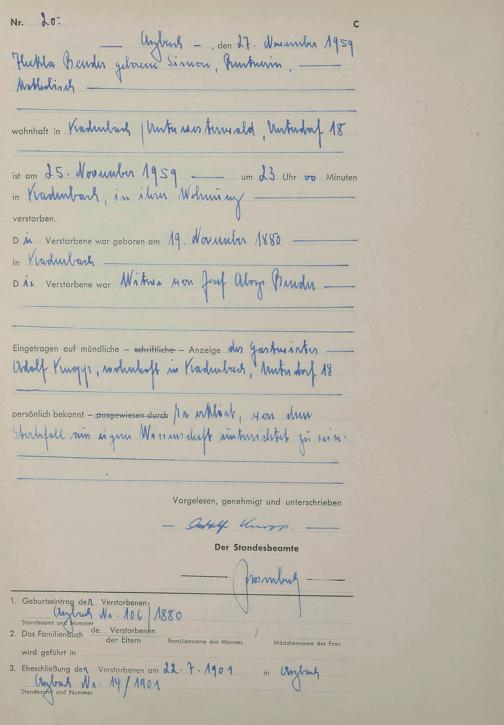 Nr. 20. C
Arzbach, den 27. November 1959
Thekla Bender geborene Simon, Rentnerin,
katholisch
wohnhaft in Kadenbach / Unterwesterwald, Unterdorf 18
ist am 25. November 1959 um 23 Uhr 00 Minuten
in Kadenbach, in ihrer Wohnung
verstorben.
Die Verstorbene war geboren am 19. November 1880
in Kadenbach
Die Verstorbene war Witwe von Josef Aloys Bender
Eingetragen auf mündliche – schriftliche – Anzeige des Gastwirtes
Adolf Knopp, wohnhaft in Kadenbach, Unterdorf 18
persönlich bekannt – ausgewiesen durch Er erklärt, von dem
Sterbefall aus eigener Wissenschaft unterrichtet zu sein.
Vorgelesen, genehmigt und unterschrieben
Adolf Knopp.
Der Standesbeamte
1. Geburtseintrag der Verstorbenen:
Arzbach Nr. 106/1880
Standesamt und Nummer
2. Das Familienbuch de Verstorbenen
der Eltern Familienname des Mannes / Mädchenname der Frau
wird geführt in
3. Eheschließung der Verstorbenen am 22.7.1901 in Arzbach
Arzbach Nr. 14/1901
Standesamt und Nummer